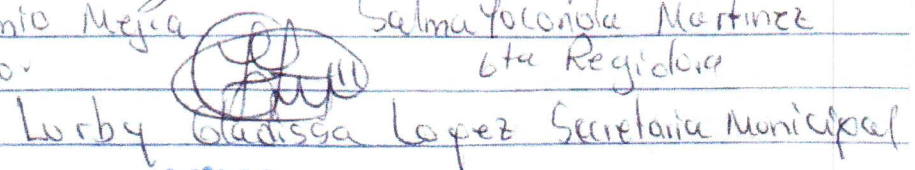 nio Mejia Salma Yoconda Martinez
o. 6ta Regidora
Lurby Gladissa Lopez Secretaria Municipal